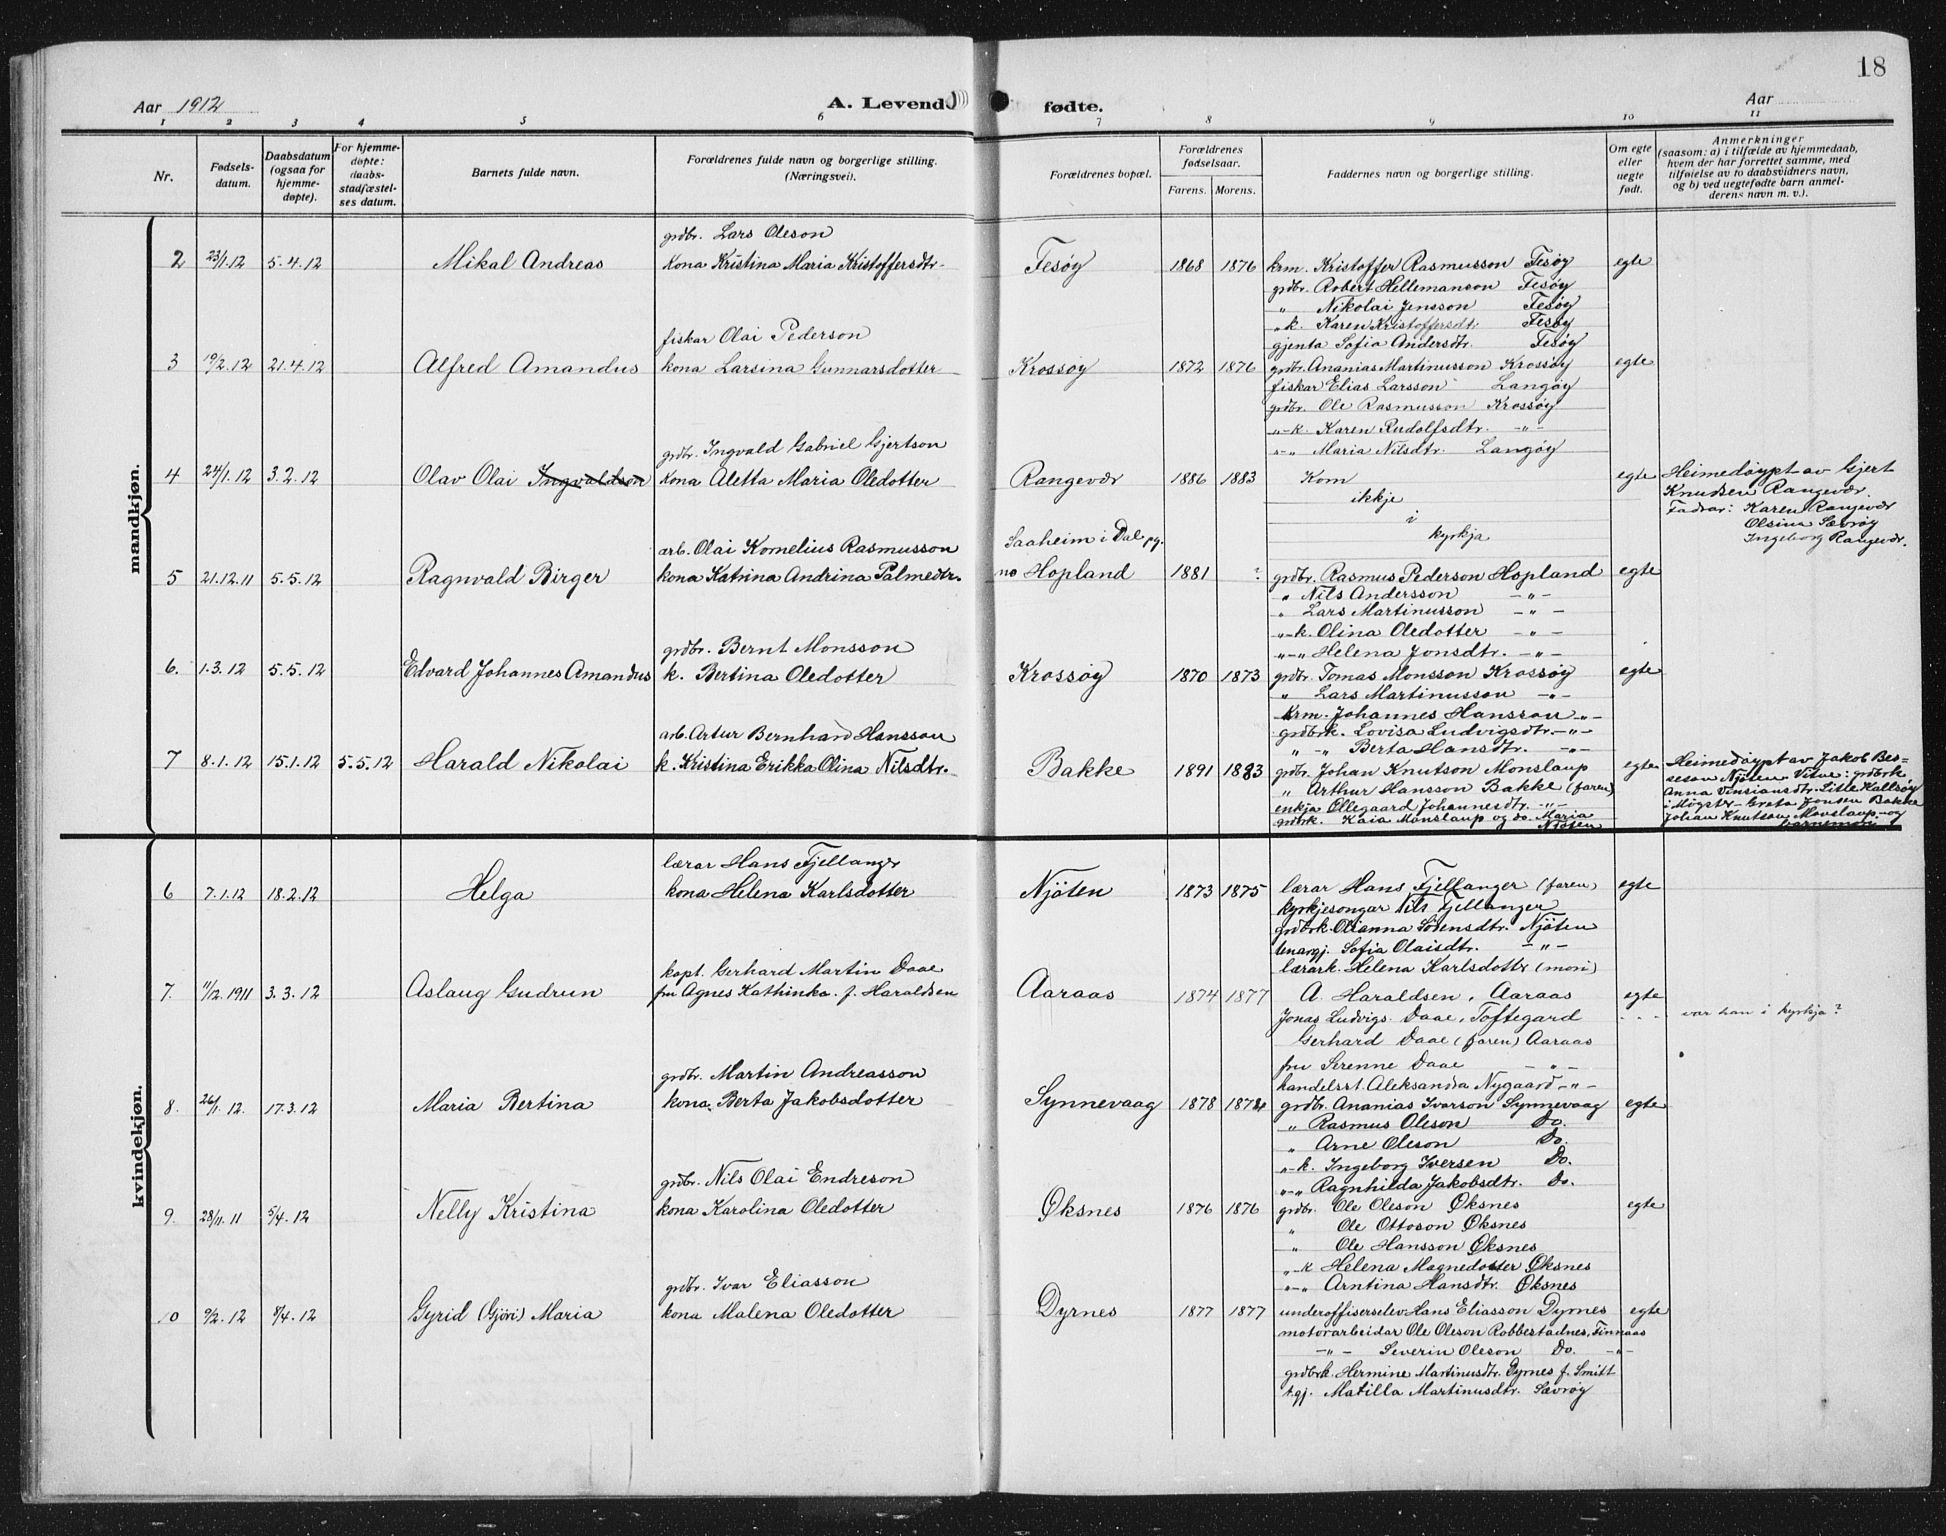 18
Aar 1912 A. Levende fødte. Aar
1 2 3 4 5 6 7 8 9 10 11
Nr. Fødsels-datum. Daabsdatum (ogsaa for hjemme-døpte). For hjemme-døpte: daabs-stadfæstel-ses datum. Barnets fulde navn. Forældrenes fulde navn og borgerlige stilling. (Næringsvei). Forældrenes bopæl. Forældrenes fødselsaar. Farens. Morens. Faddernes navn og borgerlige stilling. Om egte eller uegte født. Anmerkninger (saasom: a) i tilfælde av hjemmedaab, hvem der har forrettet samme, med tilføielse av to daabsvidners navn, og b) ved uegtefødte barn anmel-derens navn m. v.).
mandkjøn.
grdbr. Lars Oleson
2 23/1.12 5.4.12 Mikal Andreas Kona Kristina Maria Kristoffersdtr. Fesøy 1868 1876 krm. Kristoffer Rasmusson Fesøy egte
grdbr. Robert Hellemanson Fesøy
" Nikolai Jensson Fesøy
"k. Karen Kristoffersdt. Fesøy
fiskar Olai Pederson gjenta Sofia Andersdtr. Fesøy
3 19/2.12 21.4.12 Alfred Amandus kona Larsina Gunnarsdotter Krossøy 1872 1876 grdbr. Ananias Martinusson Krossøy egte
fiskar Elias Larsson Langøy
grdbr. Ole Rasmusson Krossøy
"-k. Karen Rudolfsdtr. -"-
grdbr. Ingvald Gabriel Gjertson "-" Maria Nilsdtr. Langøy
4 24/1.12 3.2.12 Olav Olai Ingvaldson kona Aletta Maria Oledotter Rangevær 1886 1883 Kom egte Heimedøypt av Gjert
ikkje Knudsen Rangevær.
i Fadrar: Karen Rangevær
kyrkja Olsina Sævrøy
Ingeborg Rangevær.
arb. Olai Kornelius Rasmusson Saaheim i Dal pg.
5 21.12.11 5.5.12 Ragnvald Birger kona Katrina Andrina Palmedtr. no Hopland 1881 ? grdbr. Rasmus Pederson Hopland egte
" Nils Andersson -"-
" Lars Martinusson -"-
"-k. Olina Oledotter -"-
grdbr. Bernt Monsson "-" Helena Jonsdtr. -"-
6. 1.3.12 5.5.12 Edvard Johannes Amandus k. Bertina Oledotter Krossøy 1870 1873 grdbr. Tomas Monsson Krossøy egte
" Lars Martinusson -"-
Krm. Johannes Hansson -"-
arb. Artur Bernhard Hansson grdbrk. Lovisa Ludvigsdtr. -"-
" -" Berta Hansdtr. -"-
7 8.1.12 15.1.12 5.5.12 Harald Nikolai k. Kristina Erikka Olina Nilsdtr. Bakke 1891 1883 grdbr. Johan Knutson Monslaup egte Heimedøypt av Jakob Bes=
" Arthur Hansson Bakke (faren) seson Njøten. Vitne: grdbrk
enkja Ollegaard Johannesdtr. -"- Anna Vinsiansdtr. Litle Kallsøy
grdbrk. Kaia Monslaup og do. Maria Njøten i Møgster - Greta Jonsen Bakke
Johan Knutson Monslaup - og
barnemori
kvindekjøn.
lærar Hans Fjellanger
6 7.1.12 18.2.12 Helga kona Helena Karlsdotter Njøten 1873 1875 lærar Hans Fjellanger (faren) egte
kyrkjesongar Nils Fjellanger
grdbrk. Olianna Sørensdtr. Njøten
tenargj. Sofia Olaisdtr. -"-
kapt. Gerhard Martin Daae lærark. Helena Karlsdottr (mori)
7. 11/12.1911 3.3.12 Aslaug Gudrun fru Agnes Kathinka f. Haraldsen Aaraas 1874 1877 A. Haraldsen, Aaraas egte
Jonas Ludvigs. Daae, Toftegard - - - var han i kyrkja?
Gerhard Daae (faren) Aaraas
grdbr. Martin Andreasson fru Serenne Daae -"-
handelsst. Aleksandra Nygaard -"-
8. 26/1.12. 17.3.12 Maria Bertina kona Berta Jakobsdotter Synnevaag 1878 1874 grdbr. Ananias Ivarson Synnevaag egte
" Rasmus Oleson Do.
" Arne Oleson Do.
"-k. Ingeborg Iversen Do.
grdbr. Nils Olai Endreson "-" Ragnhilda Jakobsdtr. Do.
9. 28/11.11 5/4.12 Nelly Kristina kona Karolina Oledotter Øksnes 1876 1876 grdbr. Ole Oleson Øksnes egte
" Ole Ottoson Øksnes
" Ole Hansson Øksnes
"-k Helena Magnedotter Øksnes
grdbr. Ivar Eliasson "-" Arntina Hansdtr. Øksnes
10 9/2.12 8/4.12 Gyrid (Gjöri) Maria kona Malena Oledotter Dyrnes 1877 1877 underoffiserselev Hans Eliasson Dyrnes egte
motorarbeidar Ole Oleson Robbestadnes, Finnaas
-"- Severin Oleson Do. -"-
grdbrk. Hermine Martinusdtr. Dyrnes f. Smitt
t.gj. Matilla Martinusdtr. Sævrøy